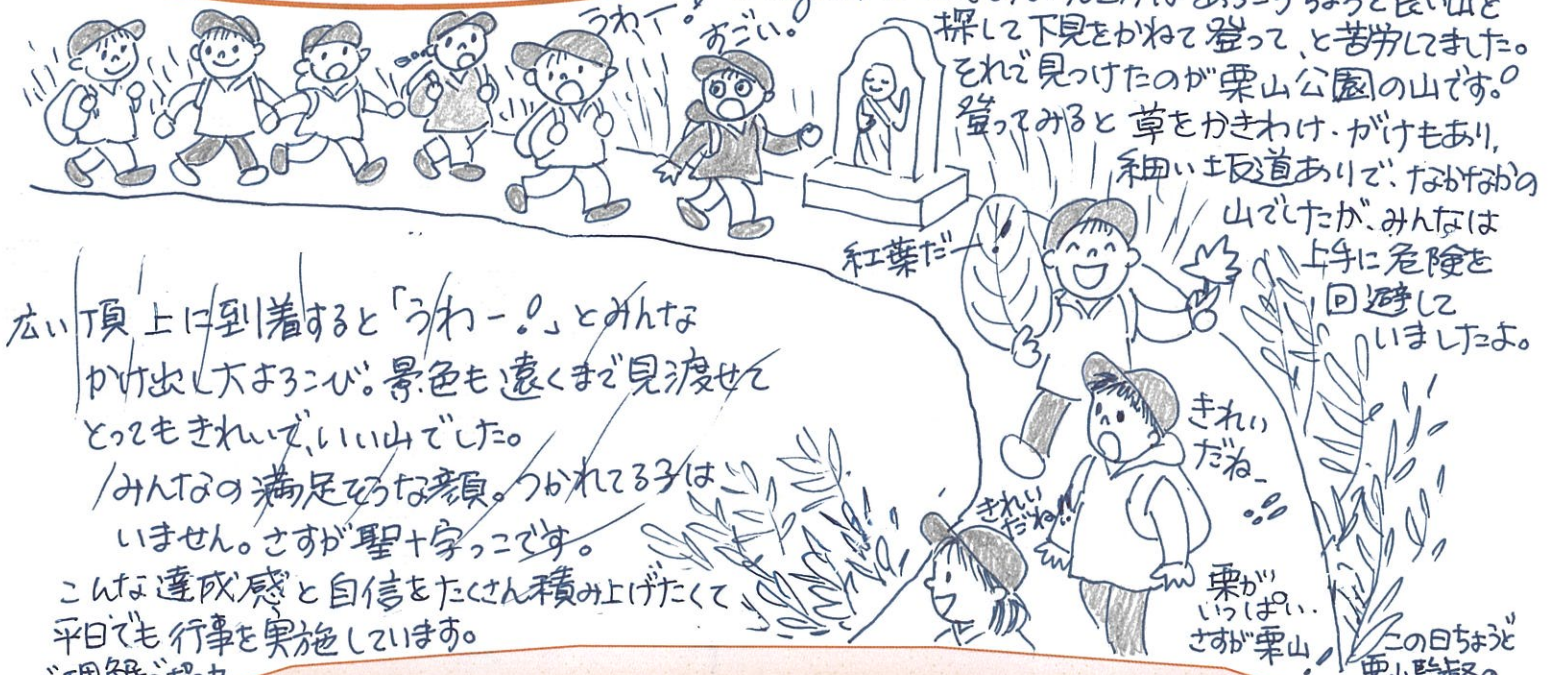 うわー!
すごい!
探して下見をかねて登って、と苦労してました。
それで見つけたのが栗山公園の山です。
登ってみると草をかきわけ・がけもあり、
細い坂道ありで、なかなかの
山でしたが、みんなは
上手に危険を
回避して
いましたよ。
紅葉だー
広い頂上に到着すると「うわー!」とみんな
かけ出し大よろこび。景色も遠くまで見渡せて
とってもきれいで、いい山でした。
みんなの満足そうな顔。つかれてる子は
いません。さすが聖十字っこです。
こんな達成感と自信をたくさん積み上げたくて
平日でも行事を実施しています。
きれい
だねー
きれい
だね!!
栗が
いっぱい.
さすが栗山
この日ちょうど